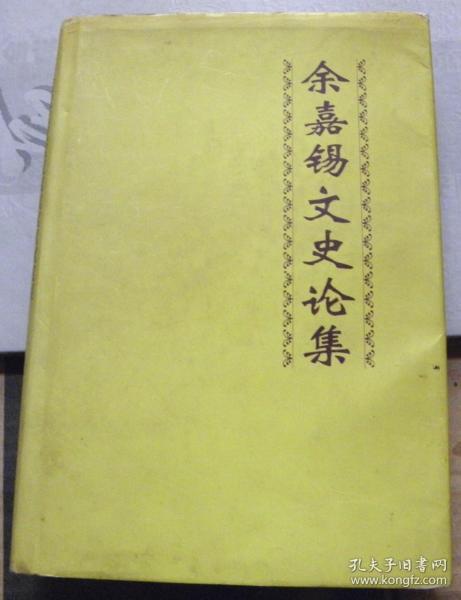 余嘉锡文史论集
孔夫子旧书网
www.kongfz.com